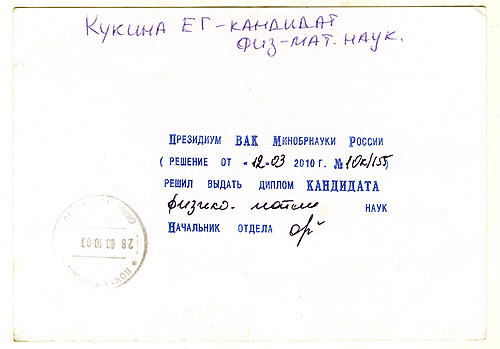 Кукина ЕГ-кандидат
физ-мат. наук.
Президиум ВАК Минобрнауки России
(решение от «12.03 2010 г. №10к/155)
решил выдать диплом КАНДИДАТА
физико. матем наук
Начальник отдела
28 03 10 03
* ПОЧТА